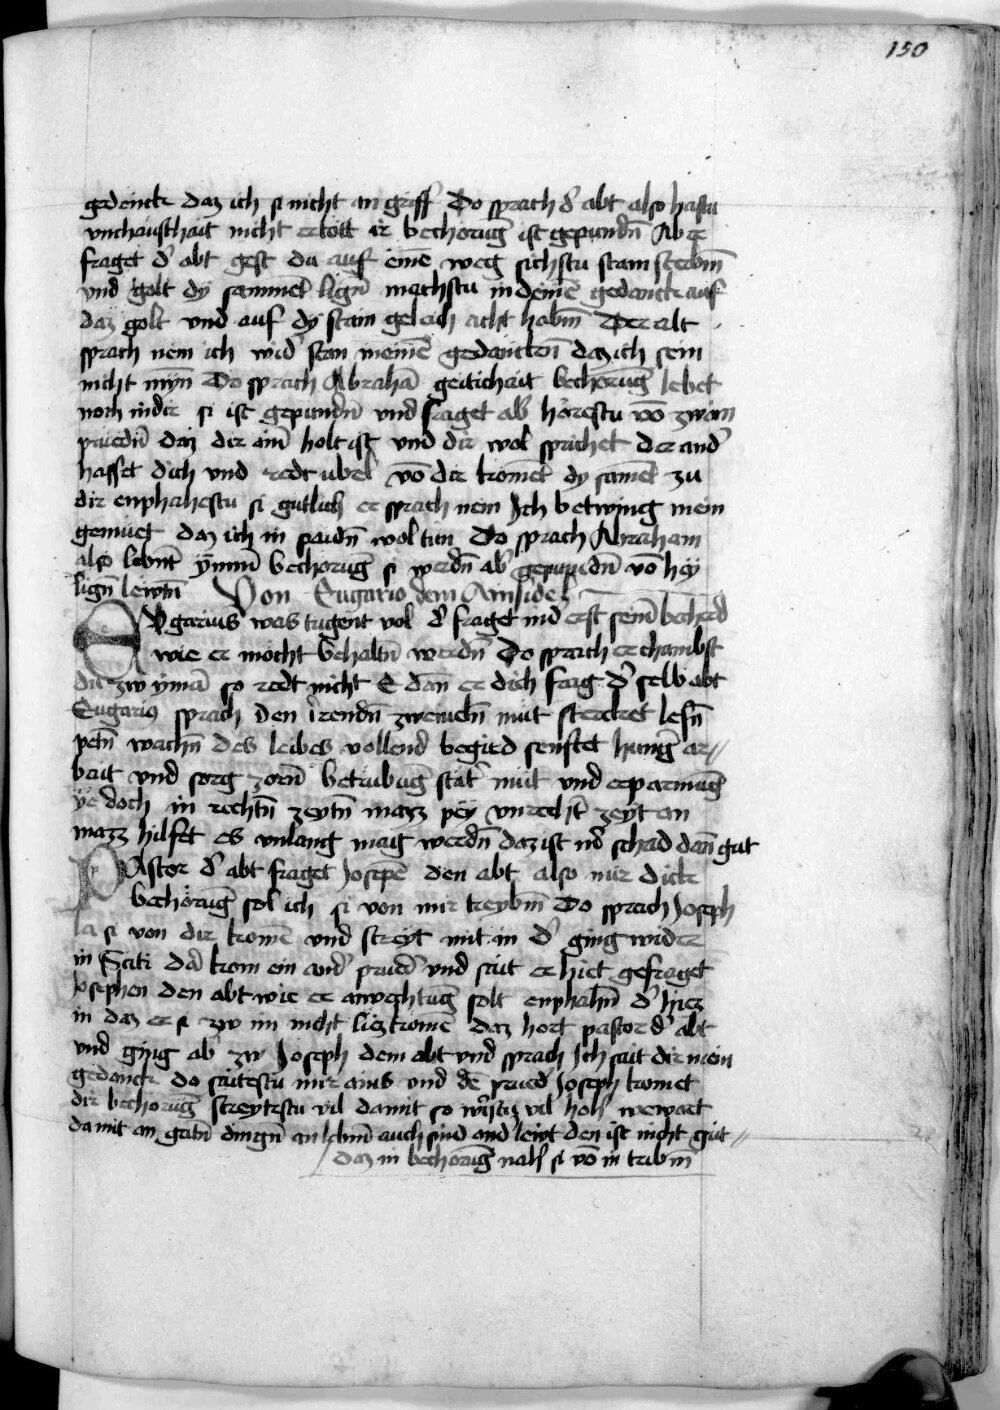 150
gedenck daz ich si nicht an griff Do sprach d' abt also hastu
vnchaüschait nicht ertött ir bechorūg ist gepundn̄ Aber
fraget d' abt gest du auf eīnē weg sichstu stain scerbm̄
vnd golt dy sammet lign̄ machstu in deinē gedanck auf
daz golt vnd auf dy stain geleich acht habm̄ Der alt
sprach nein ich wid' stan meinē gedanckn̄ daz ich sein
nicht nym̄ Do sprach Abrahā geitichait bechorūg lebet
noch in dir si ist gepundn̄ vnd fraget ab' hörestu vō zwain
prüedn̄ daz dir ain' holt ist vnd dir wol sprichet der and'
hasset dich vnd redt übel vō dir komēt dy samēt zu
dir enphahestu si gutlich er sprach nein Ich betwing mein
gemüet daz ich in paidn̄ wol tün Do sprach Abraham
also lebnt ymm' bechorūg si werdn̄ ab' gepundn̄ vō hey
lign̄ lewtn̄ Von Eugario dem Ainsidel
EVgarius was tugent vol d' fraget in d' erst sein' becherd
wie er möcht behaltn̄ werdn̄ Do sprach er chumbst
du zw ymā so redt nicht E dan er dich frag d' selb abt
Eugarius sprach Den irrendn̄ zweiueln̄ müt sterckt lesn̄
petn̄ wachn̄ des leibes vollend' begird senftet hung' ar//
beit vnd sorg zorn̄ betrübūg stät' müt vnd erparmūg
ye doch in rechtn̄ zeytn̄ mazz pey vnrecht' zeyt an
mazz hilfet es vnlang mag werdn̄ daz ist m' schad dan̄ gut
PAstor d' abt fraget Josepē den abt also mir dick
bechorūg sol ich si von mir treybm̄ Do sprach Joseph
la si von dir komē vnd streyt mit in d' ging wider
in Sciti Da kom ein and' prued' vnd sait er hiet gefraget
Josephen den abt wie er anvechtūg solt enphahn̄ d' hiez
in daz er si zw im nicht liez komē daz hort pastor d' abt
vnd ging ab' zw Joseph dem abt vnd sprach Ich sait dir mein
gedanck do saitestu mir ains vnd dē prued' Joseph komet
dir bechorūg streytestu vil damit so wirstu vil holcz bewart
damit an gutn̄ dingn̄ an lebm̄ auch sind and' lewt den ist nicht gut //
daz in bechorūg nahe si vō in tribm̄